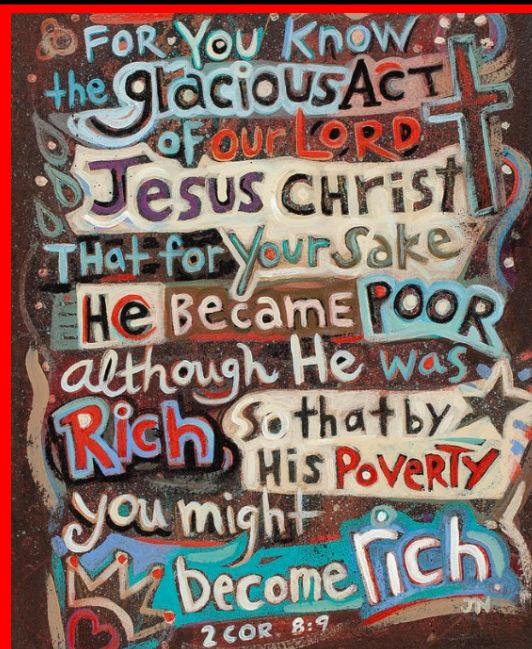 FOR YOU KNOW
the gracious ACT
OF our LORD
Jesus CHrist
THat for Your Sake
He BecamE POOR
although He was
Rich, So that by
His POVERTY
you might
become rich
JN
2 COR 8:9